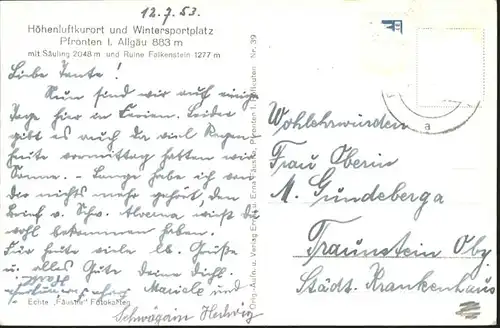 12.7.53.
Höhenluftkurort und Wintersportplatz
Pfronten i. Allgäu 883 m
mit Säuling 2048 m und Ruine Falkenstein 1277 m
Liebe Tante!
Nun sind wir auf einige
Tage hier in Ferien. Leider
gibt es auch da viel Regen
heute vormittag hatten wir
Sonne. - Lange habe ich von
dir nichts mehr gehört, den
Brief v. Schw. wirst du
wohl bekommen haben.
Für heute viele lb. Grüße
u. alles Gute deine dkb.
Mariele und
Schwägerin Hedwig
Echte „Fäustle“ Fotokarten
Org.-Aufn. u. Verlag Erna Fäustle, Pfronten i. Nr. 39
a
Wohlehrwürden
Frau Oberin
M. Gundeberga
Traunstein Oby.
Städt. Krankenhaus